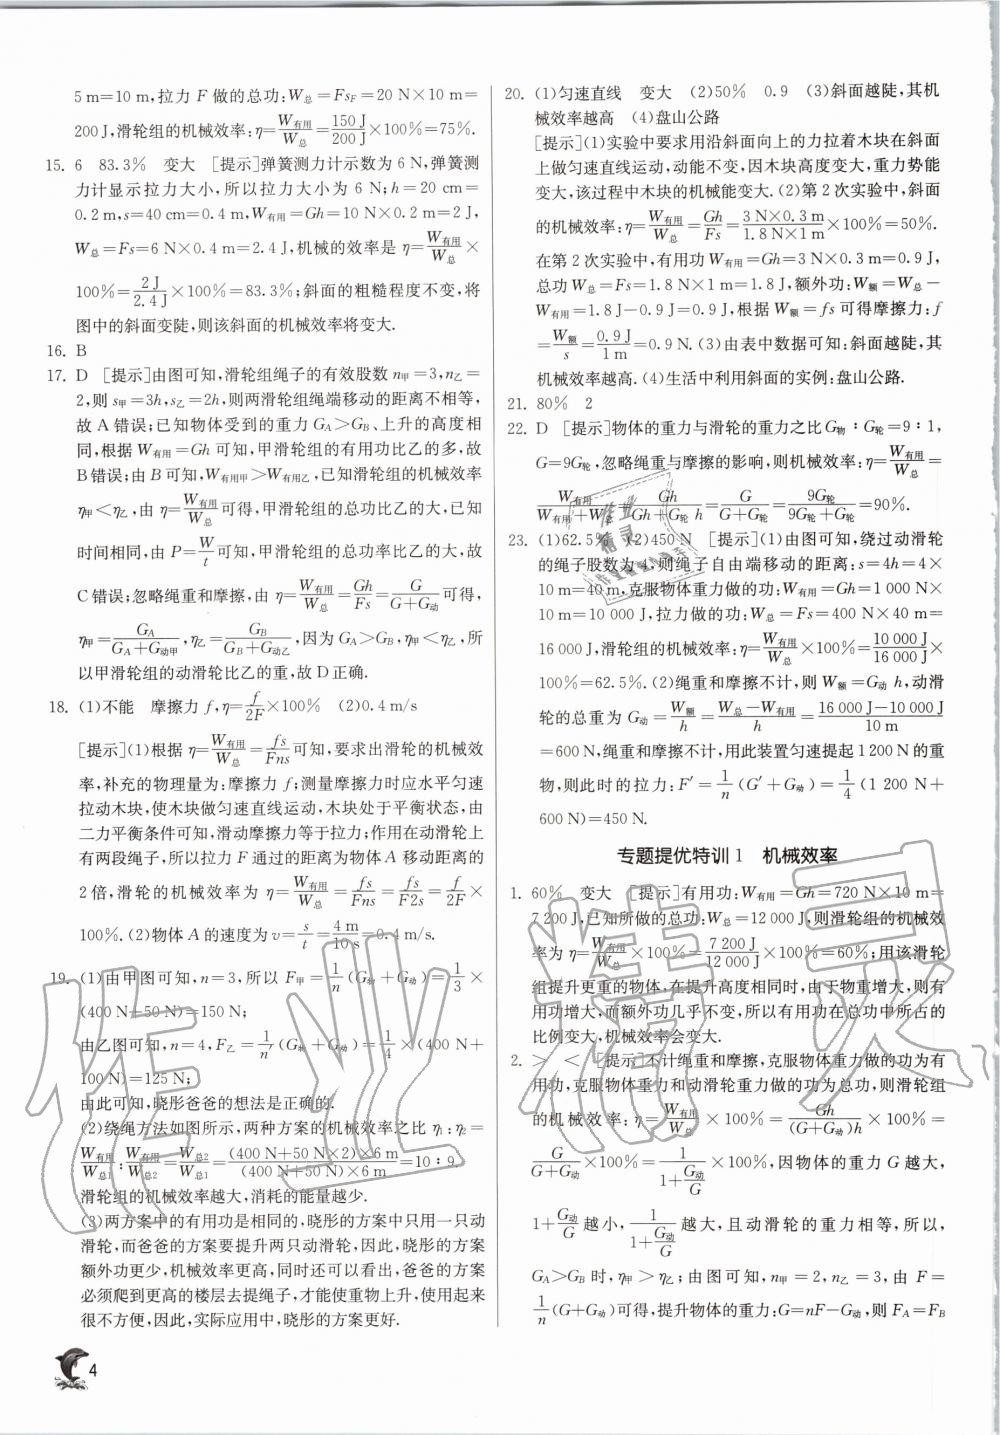 5 m=10 m,拉力 F 做的总功:W总=FsF=20 N×10 m=
200 J,滑轮组的机械效率:η=W有用/W总=150 J/200 J×100%=75%.
15. 6　83.3%　变大　[提示]弹簧测力计示数为 6 N,弹簧测
力计显示拉力大小,所以拉力大小为 6 N;h=20 cm=
0.2 m,s=40 cm=0.4 m,W有用=Gh=10 N×0.2 m=2 J,
W总=Fs=6 N×0.4 m=2.4 J,机械的效率是 η=W有用/W总×
100%=2 J/2.4 J×100%=83.3%;斜面的粗糙程度不变,将
图中的斜面变陡,则该斜面的机械效率将变大.
16. B
17. D　[提示]由图可知,滑轮组绳子的有效股数 n甲=3,n乙=
2,则 s甲=3h,s乙=2h,则两滑轮组绳端移动的距离不相等,
故 A 错误;已知物体受到的重力 GA>GB、上升的高度相
同,根据 W有用=Gh 可知,甲滑轮组的有用功比乙的多,故
B 错误;由 B 可知,W有用甲>W有用乙,已知滑轮组的机械效率
η甲<η乙,由 η=W有用/W总可得,甲滑轮组的总功比乙的大,已知
时间相同,由 P=W/t可知,甲滑轮组的总功率比乙的大,故
C 错误;忽略绳重和摩擦,由 η=W有用/W总=Gh/Fs=G/(G+G动)可得,
η甲=GA/(GA+G动甲),η乙=GB/(GB+G动乙),因为 GA>GB,η甲<η乙,所
以甲滑轮组的动滑轮比乙的重,故 D 正确.
18. (1)不能　摩擦力 f,η=f/2F×100%　(2)0.4 m/s
[提示](1)根据 η=W有用/W总=fs/Fns可知,要求出滑轮的机械效
率,补充的物理量为:摩擦力 f;测量摩擦力时应水平匀速
拉动木块,使木块做匀速直线运动,木块处于平衡状态,由
二力平衡条件可知,滑动摩擦力等于拉力;作用在动滑轮上
有两段绳子,所以拉力 F 通过的距离为物体 A 移动距离的
2 倍,滑轮的机械效率为 η=W有用/W总=fs/Fns=fs/F2s=f/2F×
100%.(2)物体 A 的速度为 v=s/t=4 m/10 s=0.4 m/s.
19. (1)由甲图可知,n=3,所以 F甲=1/n(G物+G动)=1/3×
(400 N+50 N)=150 N;
由乙图可知,n=4,F乙=1/n′(G物+G动)=1/4×(400 N+
100 N)=125 N;
由此可知,晓彤爸爸的想法是正确的.
(2)绕绳方法如图所示,两种方案的机械效率之比 η1:η2=
W有用/W总1:W有用/W总2=W总2/W总1=(400 N+50 N×2)×6 m/(400 N+50 N)×6 m=10:9.
滑轮组的机械效率越大,消耗的能量越少.
(3)两方案中的有用功是相同的,晓彤的方案中只用一只动
滑轮,而爸爸的方案要提升两只动滑轮,因此,晓彤的方案
额外功更少,机械效率更高,同时还可以看出,爸爸的方案
必须爬到更高的楼层去提绳子,才能使重物上升,使用起来
很不方便,因此,实际应用中,晓彤的方案更好.
4
20. (1)匀速直线　变大　(2)50%　0.9　(3)斜面越陡,其机
械效率越高　(4)盘山公路
[提示](1)实验中要求用沿斜面向上的力拉着木块在斜面
上做匀速直线运动,动能不变,因木块高度变大,重力势能
变大,该过程中木块的机械能变大.(2)第 2 次实验中,斜面
的机械效率:η=W有用/W总=Gh/Fs=3 N×0.3 m/1.8 N×1 m×100%=50%.
在第 2 次实验中,有用功 W有用=Gh=3 N×0.3 m=0.9 J,
总功 W总=Fs=1.8 N×1 m=1.8 J,额外功:W额=W总-
W有用=1.8 J-0.9 J=0.9 J,根据 W额=fs 可得摩擦力:f
=W额/s=0.9 J/1 m=0.9 N.(3)由表中数据可知:斜面越陡,其
机械效率越高.(4)生活中利用斜面的实例:盘山公路.
21. 80%　2
22. D　[提示]物体的重力与滑轮的重力之比 G物:G轮=9:1,
G=9G轮,忽略绳重与摩擦的影响,则机械效率:η=W有用/W总=
W有用/(W有用+W额)=Gh/(Gh+G轮 h)=G/(G+G轮)=9G轮/(9G轮+G轮)=90%.
23. (1)62.5%　(2)450 N　[提示](1)由图可知,绕过动滑轮
的绳子股数为 4,则绳子自由端移动的距离:s=4h=4×
10 m=40 m,克服物体重力做的功:W有用=Gh=1 000 N×
10 m=10 000 J,拉力做的功:W总=Fs=400 N×40 m=
16 000 J,滑轮组的机械效率:η=W有用/W总×100%=10 000 J/16 000 J×
100%=62.5%.(2)绳重和摩擦不计,则 W额=G动 h,动滑
轮的总重为 G动=W额/h=(W总-W有用)/h=(16 000 J-10 000 J)/10 m
=600 N,绳重和摩擦不计,用此装置匀速提起 1 200 N 的重
物,则此时的拉力:F′=1/n(G′+G动)=1/4(1 200 N+
600 N)=450 N.
专题提优特训 1　机械效率
1. 60%　变大　[提示]有用功:W有用=Gh=720 N×10 m=
7 200 J,已知所做的总功:W总=12 000 J,则滑轮组的机械效
率为 η=W有用/W总×100%=7 200 J/12 000 J×100%=60%;用该滑轮
组提升更重的物体,在提升高度相同时,由于物重增大,有
用功增大,而额外功几乎不变,所以有用功在总功中所占的
比例变大,机械效率会变大.
2. >　<　[提示]不计绳重和摩擦,克服物体重力做的功为有
用功,克服物体重力和动滑轮重力做的功为总功,则滑轮组
的机械效率:η=W有用/W总×100%=Gh/(G+G动)h×100%=
G/(G+G动)×100%=1/(1+G动/G)×100%,因物体的重力 G 越大,
1+G动/G越小,1/(1+G动/G)越大,且动滑轮的重力相等,所以,
GA>GB 时,η甲>η乙;由图可知,n甲=2,n乙=3,由 F=
1/n(G+G动)可得,提升物体的重力:G=nF-G动,则 FA=FB
作业精灵